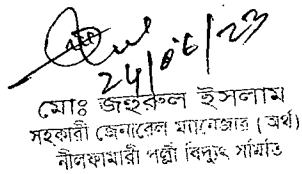 24/06/23
মোঃ জহুরুল ইসলাম
সহকারী জেনারেল ম্যানেজার (অর্থ)
নীলফামারী পল্লী বিদ্যুৎ সমিতি